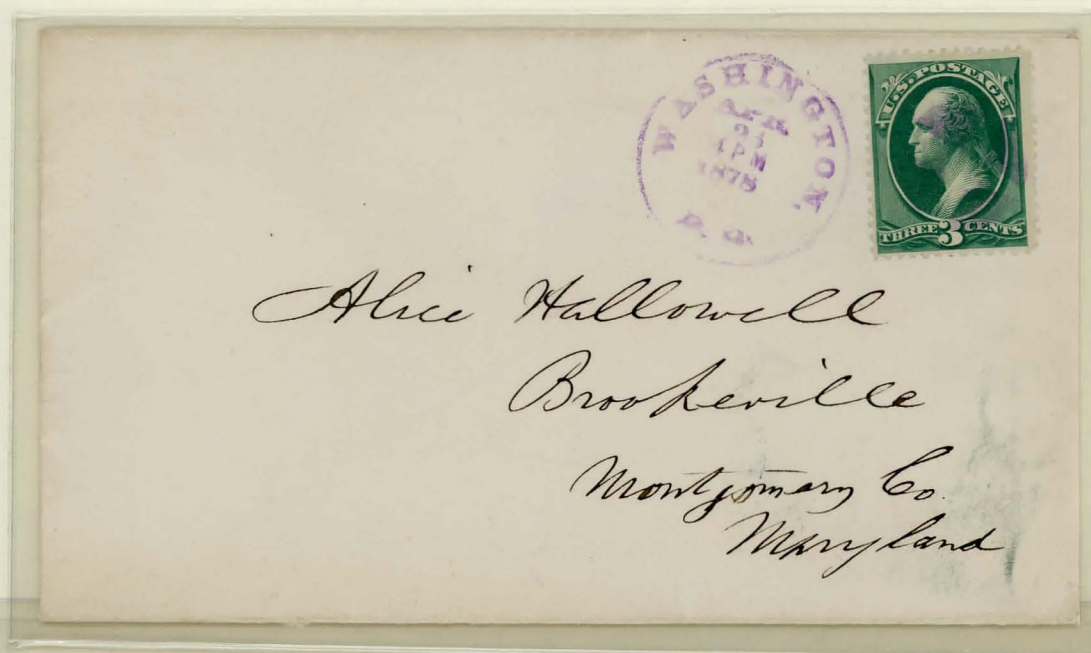 WASHINGTON.
APR
1PM
1878
D. C.
U.S. POSTAGE
THREE 3 CENTS
Alice Hallowell
Brookeville
Montgomery Co.
Maryland